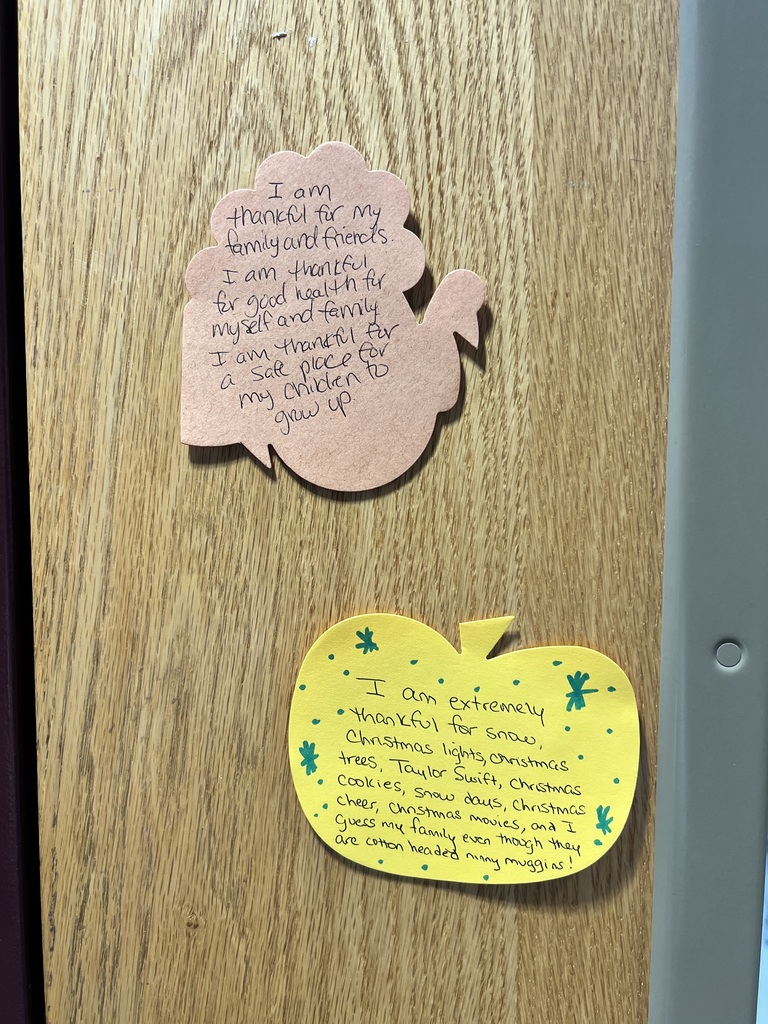 I am
thankful for my
family and friends.
I am thankful
for good health for
myself and family
I am thankful for
a safe place for
my children to
grow up
I am extremely
thankful for snow,
Christmas lights, christmas
trees, Taylor Swift, christmas
cookies, snow days, christmas
cheer, christmas movies, and I
guess my family even though they
are cotton headed ninny muggins!